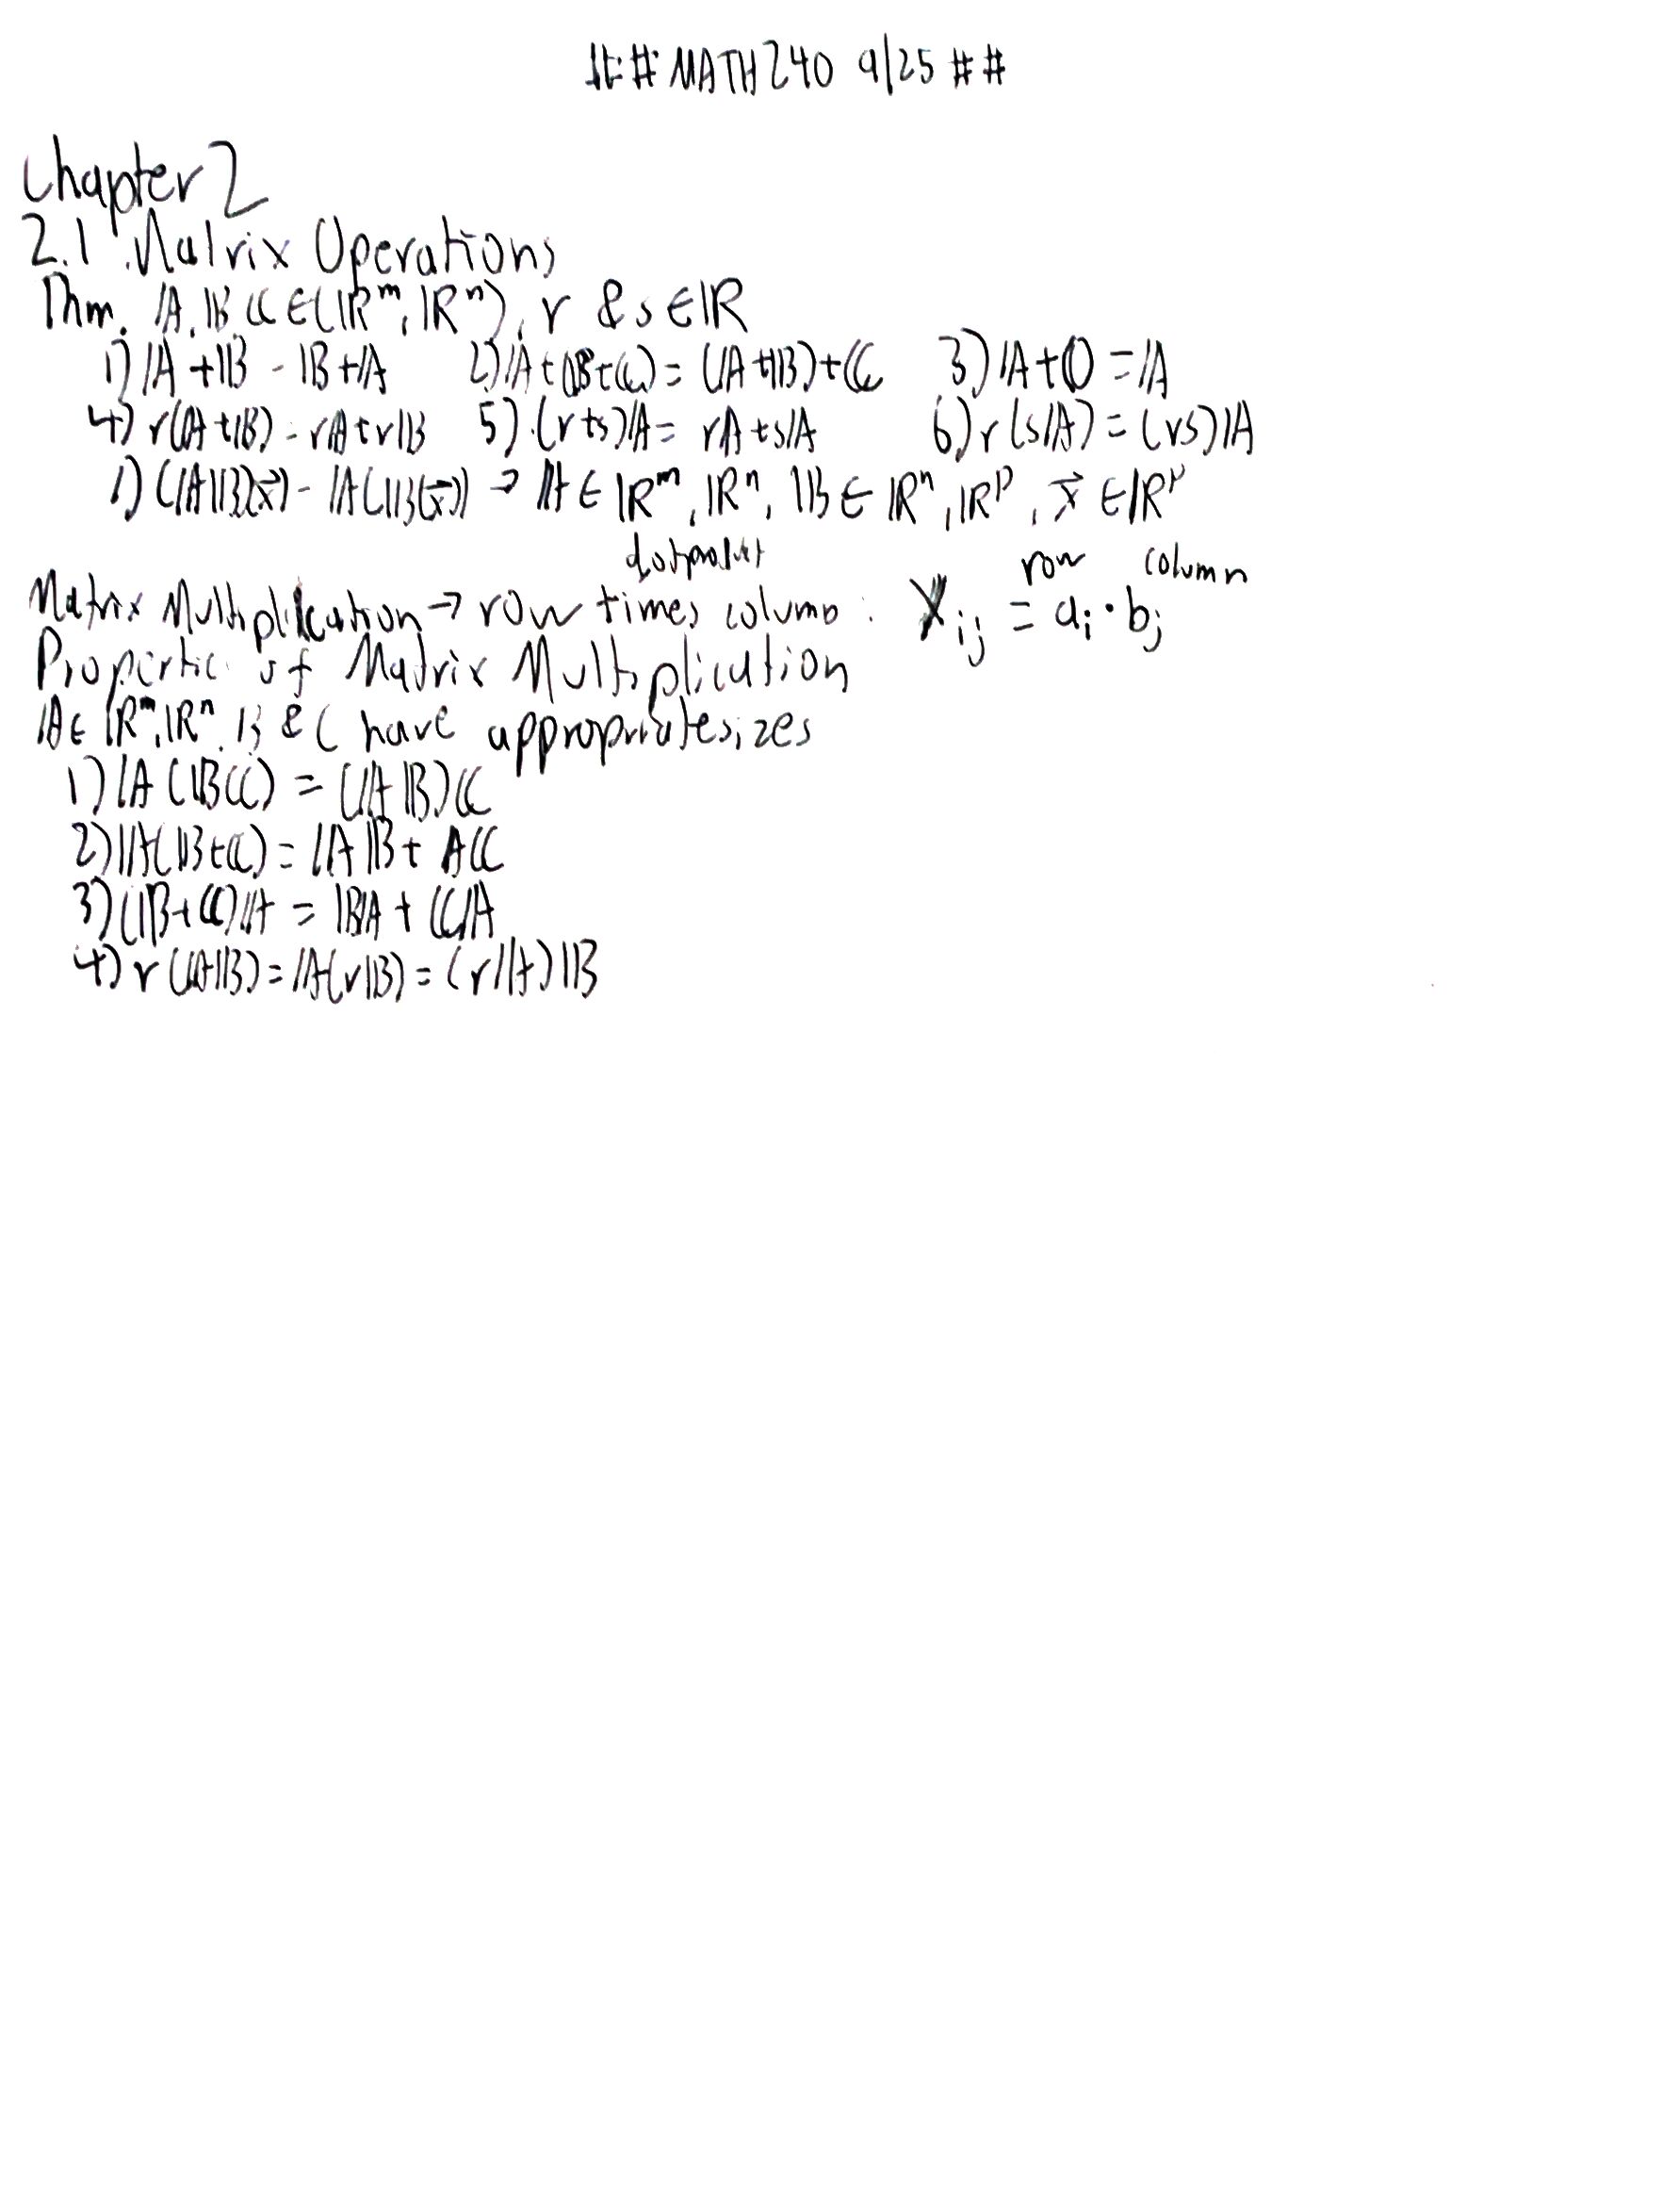 ## MATH240 9/25 ##
Chapter 2
2.1 Matrix Operations
Thm. 𝔸, 𝔹, ℂ ∈ (ℝᵐ, ℝⁿ), r & s ∈ ℝ
1) 𝔸 + 𝔹 = 𝔹 + 𝔸 2) 𝔸 + (𝔹 + ℂ) = (𝔸 + 𝔹) + ℂ 3) 𝔸 + 𝕆 = 𝔸
4) r(𝔸 + 𝔹) = r𝔸 + r𝔹 5) (r + s)𝔸 = r𝔸 + s𝔸 6) r(s𝔸) = (rs)𝔸
1) (𝔸𝔹)(x⃗) = 𝔸(𝔹(x⃗)) → 𝔸 ∈ ℝᵐ, ℝⁿ, 𝔹 ∈ ℝⁿ, ℝᵖ, x⃗ ∈ ℝᵖ
dot product row column
Matrix Multiplication → row times column : Xᵢⱼ = aᵢ · bⱼ
Properties of Matrix Multiplication
𝔸 ∈ ℝᵐ, ℝⁿ, 𝔹 & C have appropriate sizes
1) 𝔸(𝔹ℂ) = (𝔸𝔹)ℂ
2) 𝔸(𝔹 + ℂ) = 𝔸𝔹 + Aℂ
3) (𝔹 + ℂ)𝔸 = 𝔹𝔸 + ℂ𝔸
4) r(𝔸𝔹) = 𝔸(r𝔹) = (r𝔸)𝔹